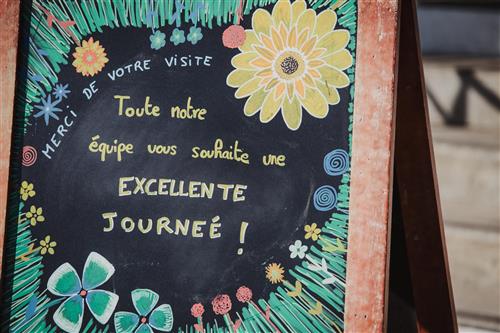 MERCI DE VOTRE VISITE
Toute notre
équipe vous souhaite une
EXCELLENTE
JOURNEÉ !